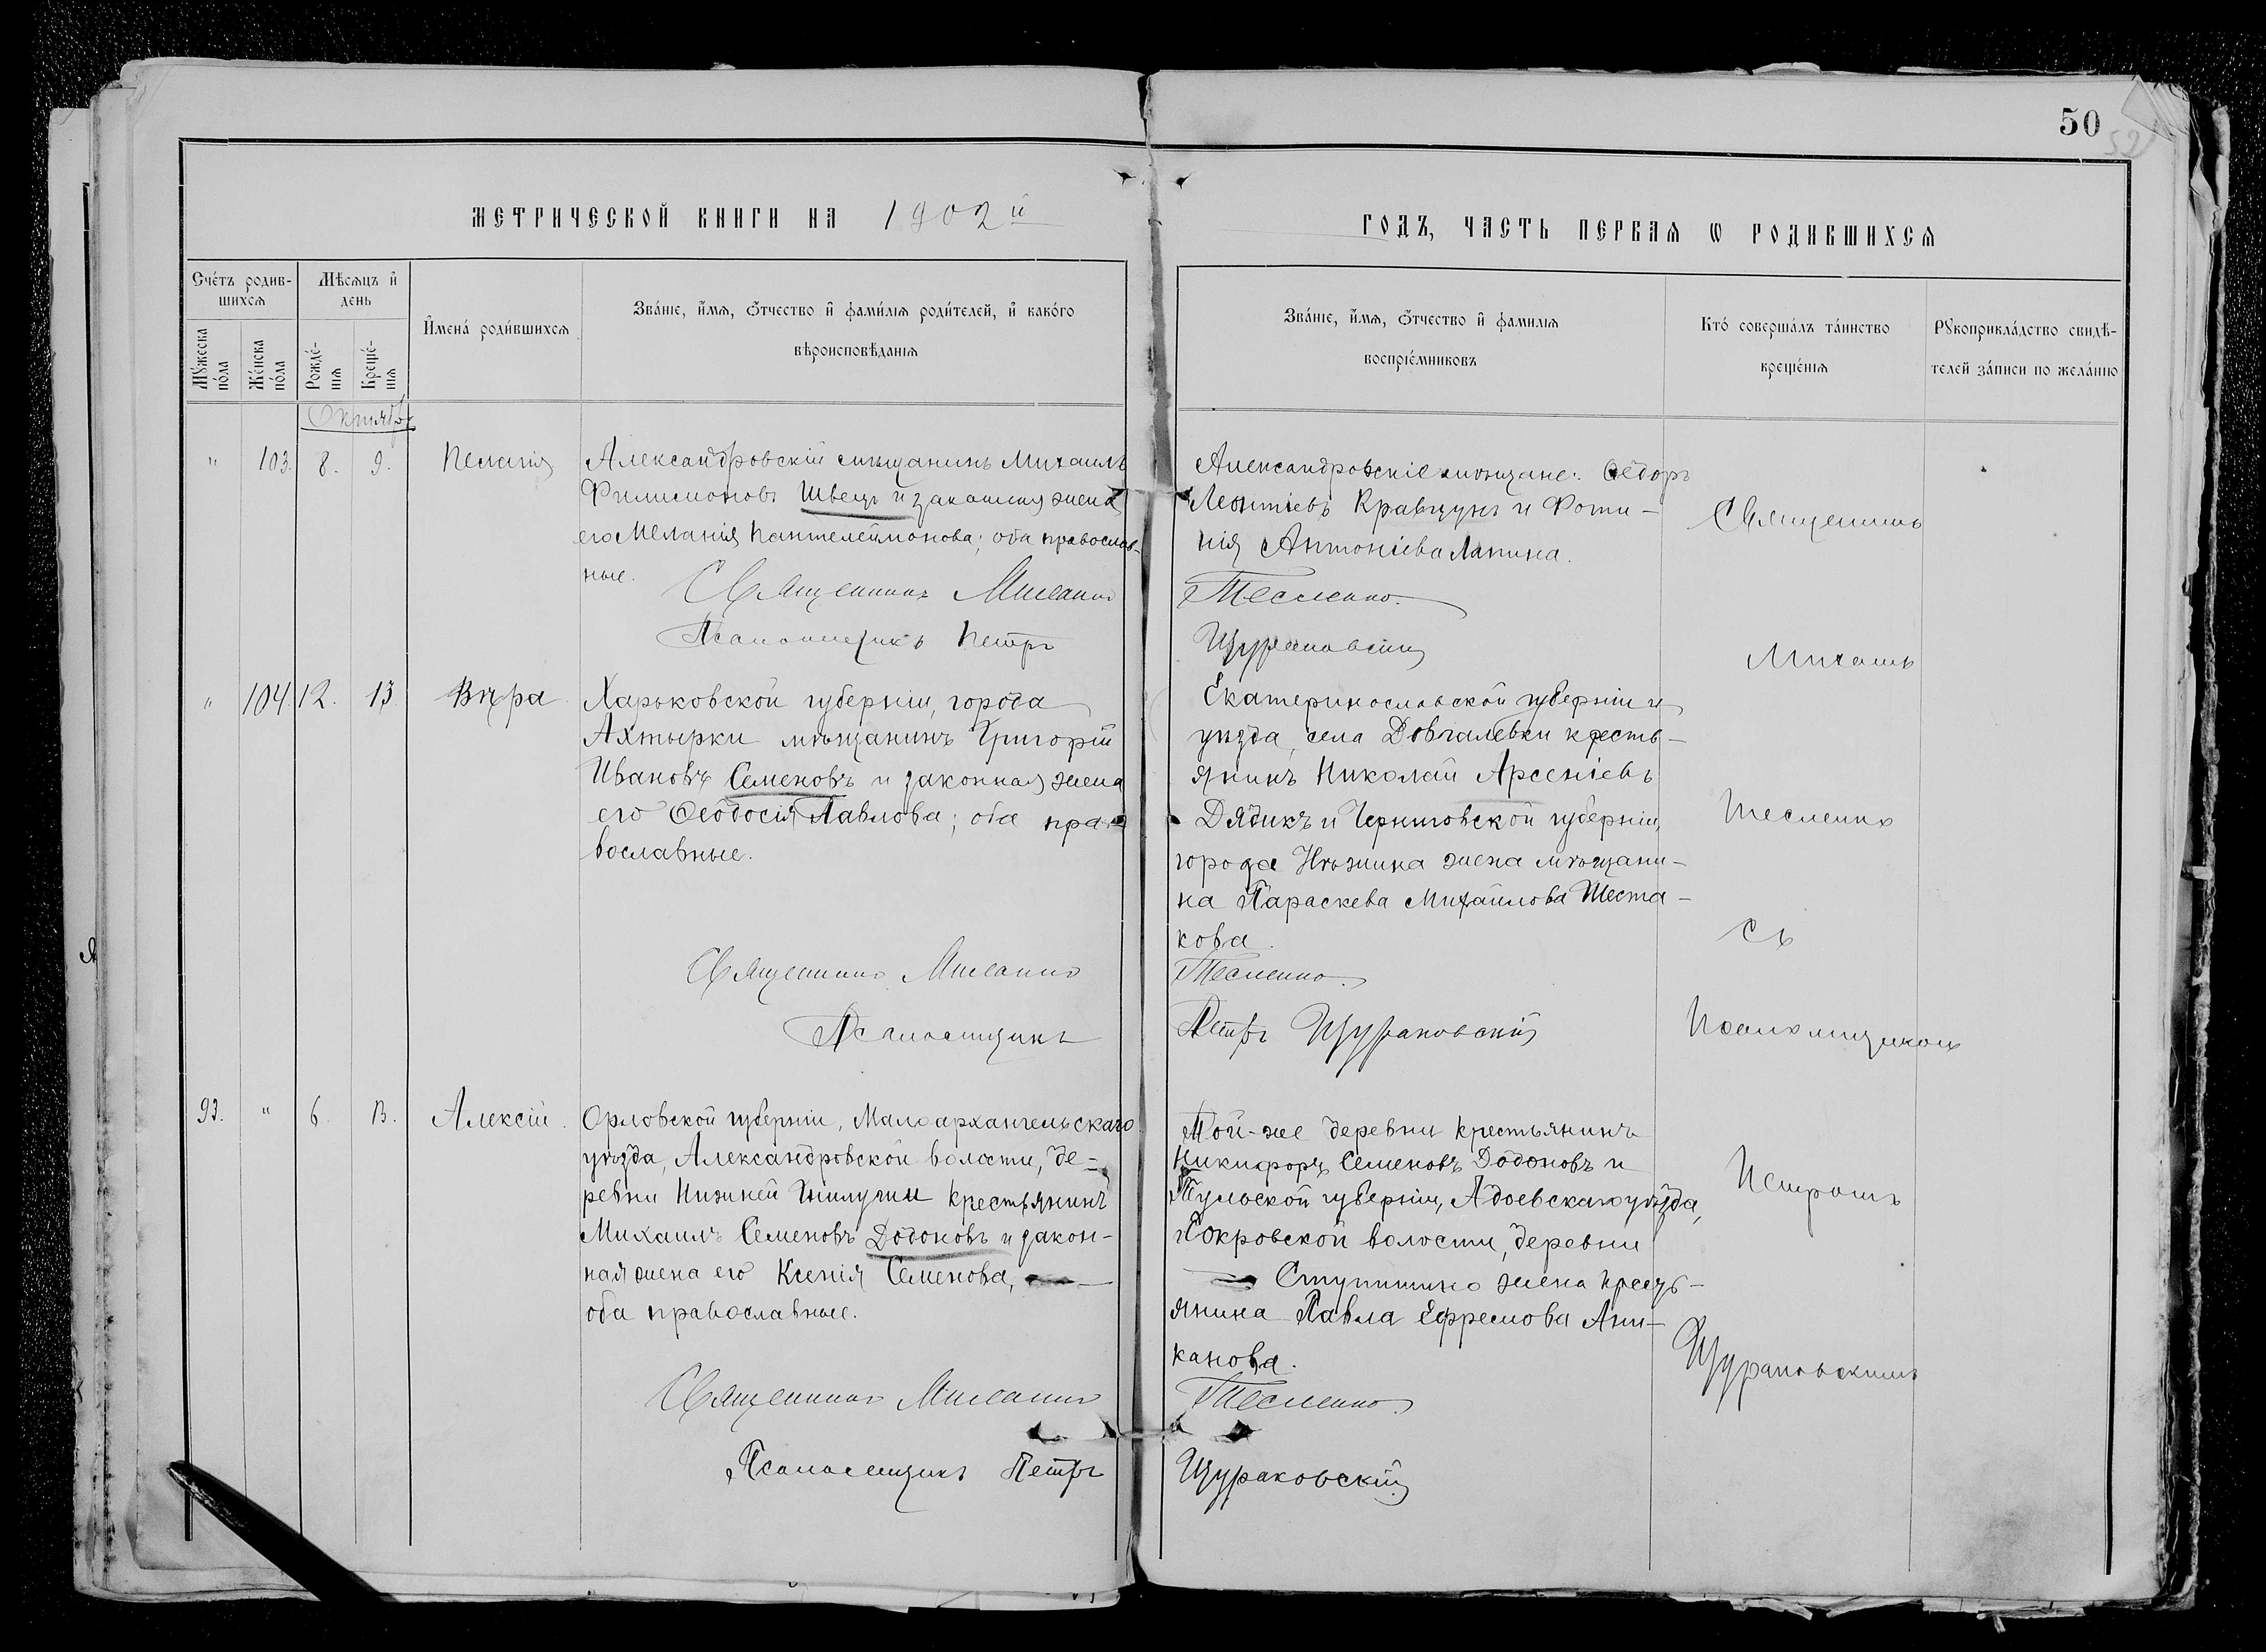 50
52
МЕТРИЧЕСКОЙ КНИГИ НА 1902й
ГОДЪ, ЧАСТЬ ПЕРВАЯ Ѡ РОДИВШИХСЯ
Счéтъ родив-
шихся
Мѣсяцъ и
день
Мужеска
пóла
Жéнска
пóла
Рождé-
нія
Крещé-
нія
Именá роди́вшихся
Звáніе, и́мя, óтчество и фами́лія роди́телей, и какóго
вѣроисповѣ́данія
Звáніе, и́мя, óтчество и фамилія
воспріéмниковъ
Ктó совершáлъ тáинство
крещéнія
Рукоприклáдство свидѣ́-
телей зáписи по желáнію
Октябрь
" 103. 8. 9. Пелагія
Александровскій мѣщанинъ Михаилъ
Филимоновъ Швецъ и законная жена
его Меланія Пантелеймонова; оба православ-
ные.
Священникъ Михаилъ
Псаломщикъ Петръ
Александровскіе мѣщане: Ѳедоръ
Леонтіевъ Кравцунъ и Фоти-
нія Антоніева Лапина.
Тесленко.
Щураковскій
" 104 12. 13 Вѣра
Харьковской губерніи, города
Ахтырки мѣщанинъ Григорій
Ивановъ Семеновъ и законная жена
его Ѳеодосія Павлова; оба пра-
вославные.
Священникъ Михаилъ
Псаломщикъ
Екатеринославской губерніи и
уѣзда, села Довгалевки кресть-
янинъ Николай Арсеніевъ
Дядикъ и Черниговской губерніи,
города Нѣжина жена мѣщани-
на Параскева Михайлова Шеста-
кова.
Тесленко.
Петръ Щураковскій
93. " 6. 13. Алексій.
Орловской губерніи, Малоархангельскаго
уѣзда, Александровской волости, де-
ревни Нижней крестьянинъ
Михаилъ Семеновъ Додоновъ и закон-
ная жена его Ксенія Семенова,
оба православные.
Священникъ Михаилъ
Псаломщикъ Петръ
Той-же деревни крестьянинъ
Никифоръ Семеновъ Додоновъ и
Тульской губерніи, Адоевскаго уѣзда,
Покровской волости, деревни
Ступишино жена кресть-
янина Павла Ефремова Ани-
канова.
Тесленко.
Щураковскій
Священникъ
Михаилъ
Тесленко
съ
Псаломщикомъ
Петромъ
Щураковскимъ